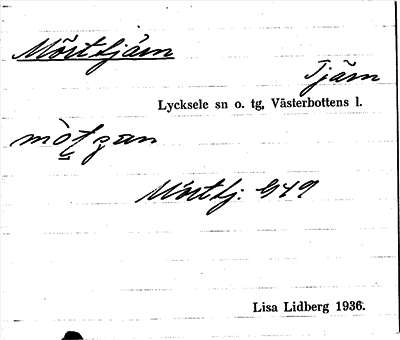 Mörttjärn
Tjärn
Lycksele sn o. tg, Västerbottens l.
Mörttj: G49
Lisa Lidberg 1936.